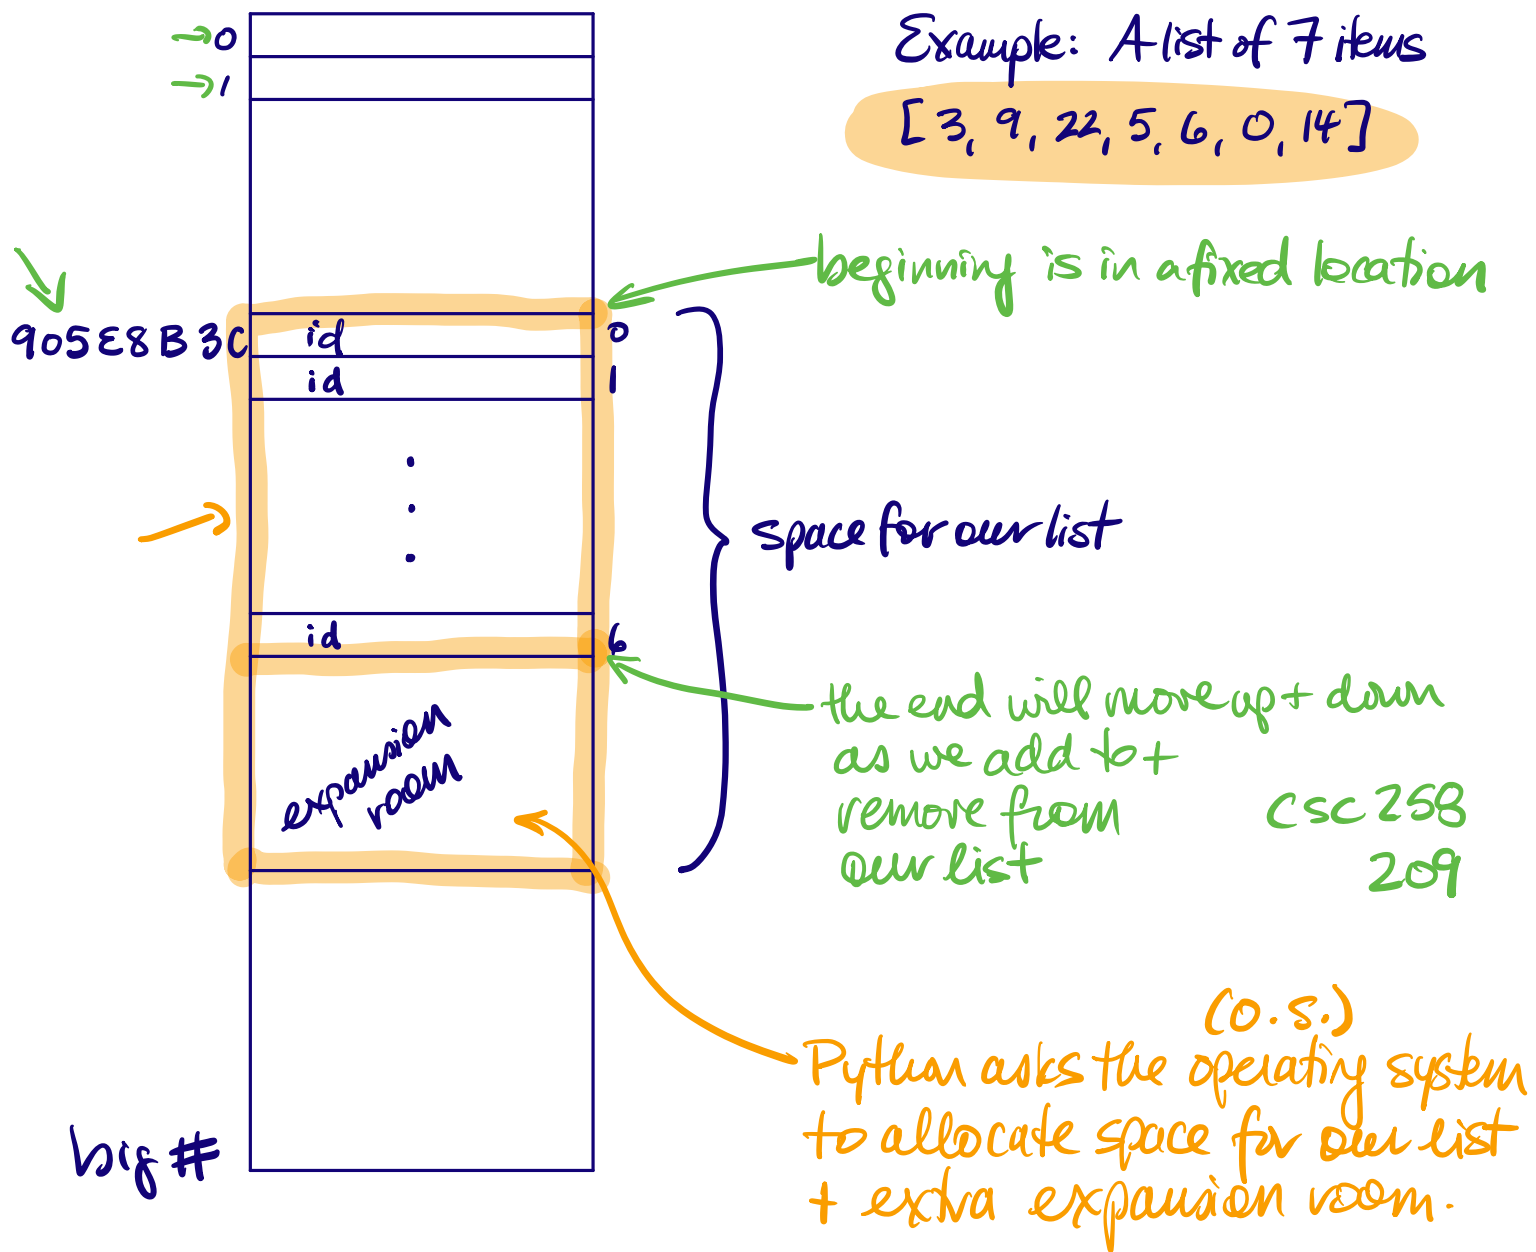 0
1
Example: A list of 7 items
[3, 9, 22, 5, 6, 0, 14]
beginning is in a fixed location
905E8B3C
id
0
id
1
space for our list
id
6
expansion
room
the end will move up + down
as we add to +
remove from
our list
CSC 258
209
(O.S.)
Python asks the operating system
to allocate space for our list
+ extra expansion room.
big #